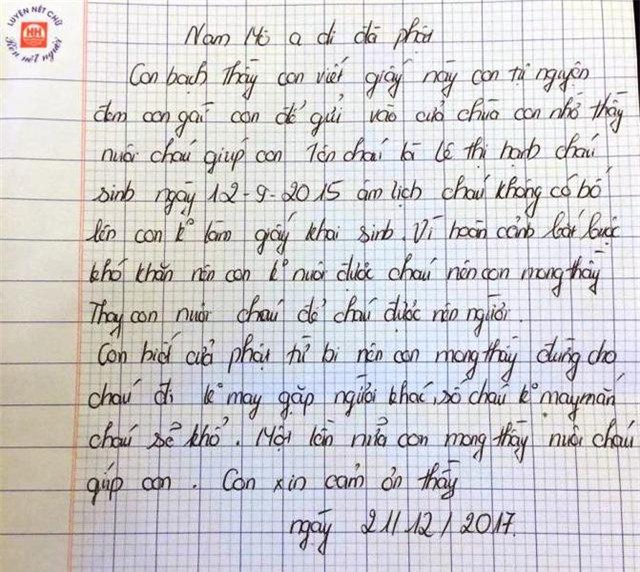 LUYỆN NÉT CHỮ
HH
Rèn nết người
Nam Mô a di đà phật
Con bạch Thầy con viết giấy này con tự nguyện
đem con gái con để gửi vào cửa chùa con nhờ thầy
nuôi cháu giúp con Tên cháu là Lê thị hạnh cháu
sinh ngày 12-9-2015 âm lịch cháu không có bố
lên con k° làm giấy khai sinh. Vì hoàn cảnh bắt buộc
khó khăn nên con k° nuôi được cháu nên con mong thầy
Thay con nuôi cháu để cháu được nên người.
Con biết cửa phật từ bi nên con mong thầy đừng cho
cháu đi k° may gặp người khác, số cháu k° may mắn
cháu sẽ khổ. Một lần nữa con mong thầy nuôi cháu
gúp con. Con xin cảm ơn thầy
ngày 21/12/2017.